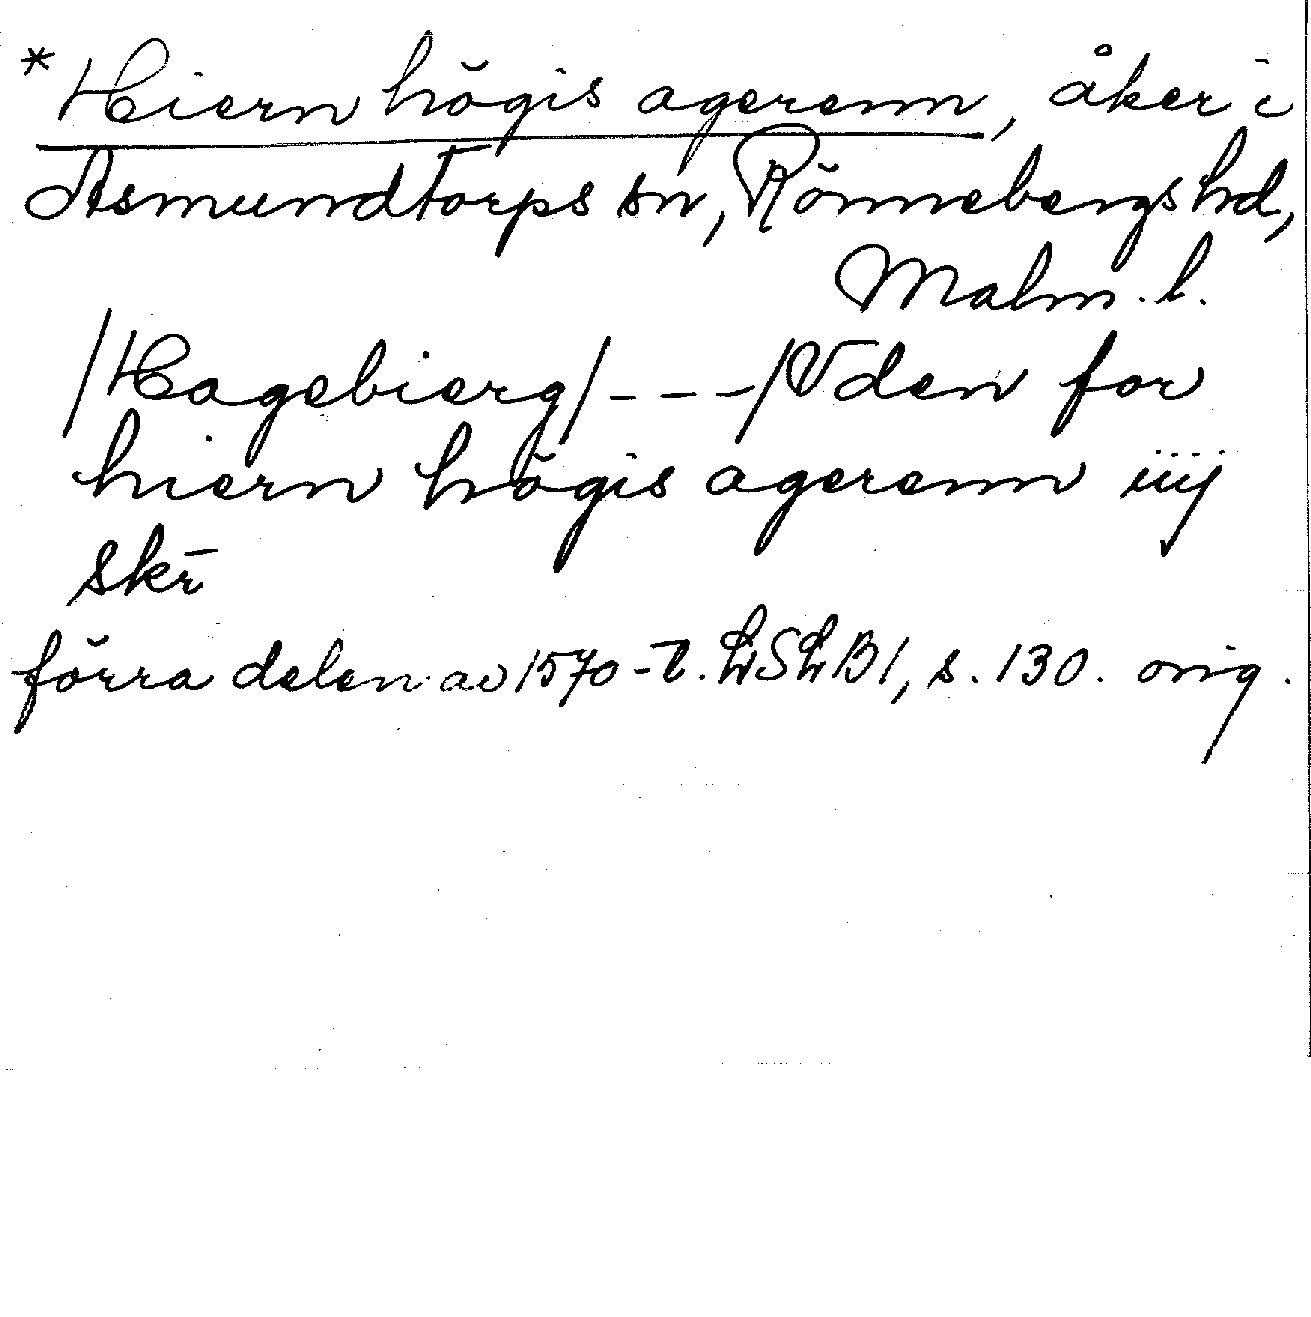 * Hiern högis agerenn, åker i
Asmundtorps sn, Rönnebergs hd,
Malm. l.
/Hagebierg/ - - - /Vden for
hiern högis agerenn iiij
skr̄
förra delen av 1570-t. LSLB1, s. 130. orig.